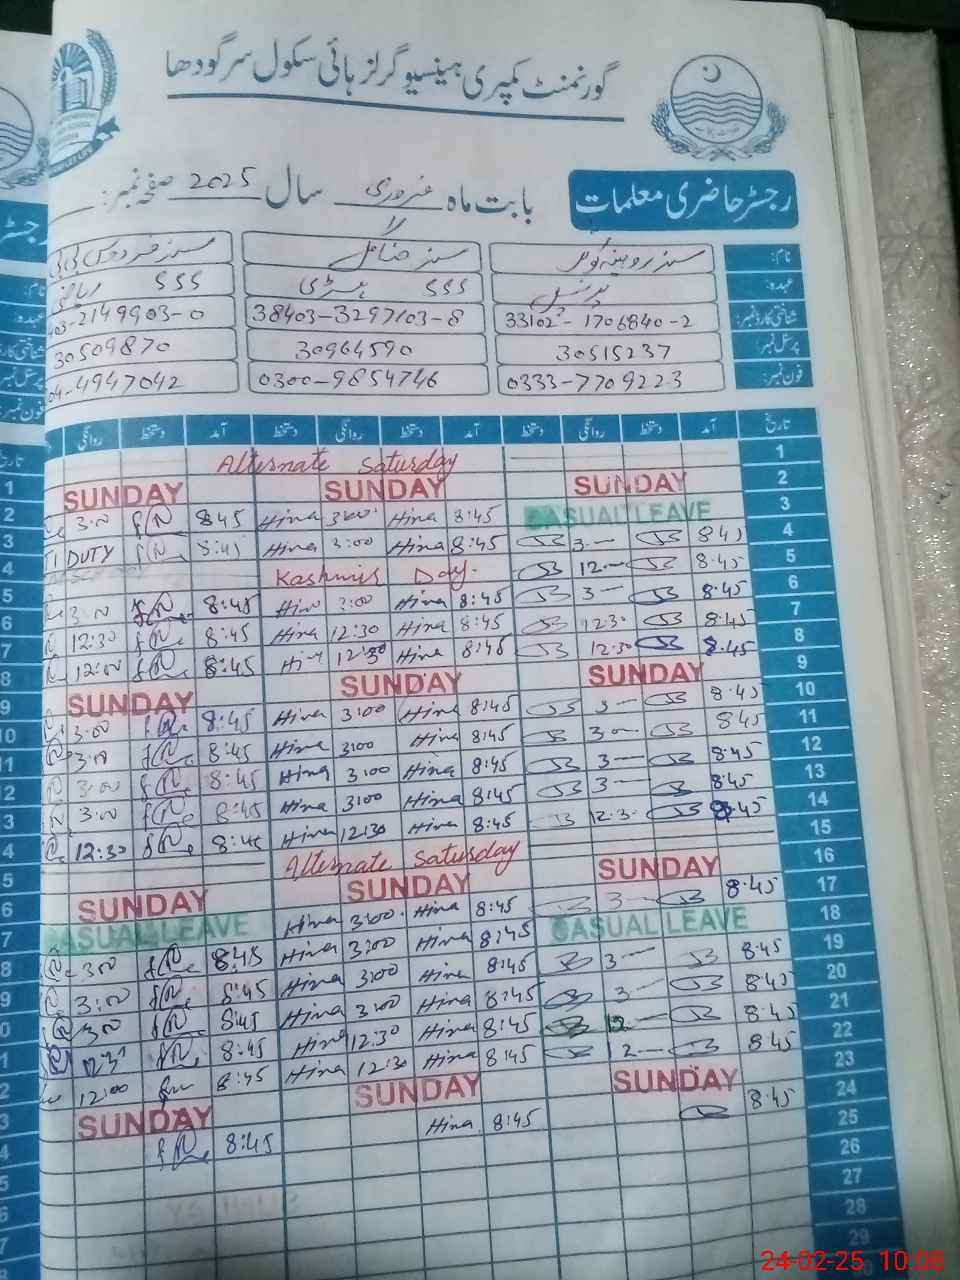 گورنمنٹ کمپری ہینسیو گرلز ہائی سکول سرگودھا
رجسٹر حاضری معلمات بابت ماہ فروری سال 2025 صفحہ نمبر:
نام:
عہدہ: پرنسپل SSS SSS ریاضی
شناختی کارڈ نمبر: 33102-1706840-2 38403-3297103-8 403-2149903-0
پرسنل نمبر: 30515237 30964590 30509870
فون نمبر: 0333-7709223 0300-9854746 04-4947042
تاریخ آمد دستخط روانگی دستخط آمد دستخط روانگی دستخط آمد دستخط روانگی
1 Alternate Saturday
2 SUNDAY SUNDAY SUNDAY
3 CASUAL LEAVE 8:45 Hina 3:00 Hina 8:45 3:00
4 8:45 3 8:45 Hina 3:00 Hina 8:45 DUTY
5 8:45 12 Kashmir Day.
6 8:45 3 8:45 Hina 3:00 Hina 8:45 3:00
7 8:45 12:30 8:45 Hina 12:30 Hina 8:45 12:30
8 8:45 12:30 8:45 Hina 12:30 Hina 8:45 12:00
9 SUNDAY SUNDAY SUNDAY
10 8:45 3 8:45 Hina 3:00 Hina 8:45 3:00
11 8:45 3 8:45 Hina 3:00 Hina 8:45 3:00
12 8:45 3 8:45 Hina 3:00 Hina 8:45 3:00
13 8:45 3 8:45 Hina 3:00 Hina 8:45 3:00
14 8:45 12:30 8:45 Hina 12:30 Hina 8:45 12:30
15 Alternate Saturday
16 SUNDAY SUNDAY SUNDAY
17 8:45 3 8:45 Hina 3:00 Hina CASUAL LEAVE
18 CASUAL LEAVE 8:45 Hina 3:00 Hina 8:45 3:00
19 8:45 3 8:45 Hina 3:00 Hina 8:45 3:00
20 8:45 3 8:45 Hina 3:00 Hina 8:45 3:00
21 8:45 12 8:45 Hina 12:30 Hina 8:45
22 8:45 12 8:45 Hina 12:30 Hina 8:45 12:00
23 SUNDAY SUNDAY SUNDAY
24 8:45 8:45 Hina 8:45
25
26
27
28
29
24-02-25 10:08